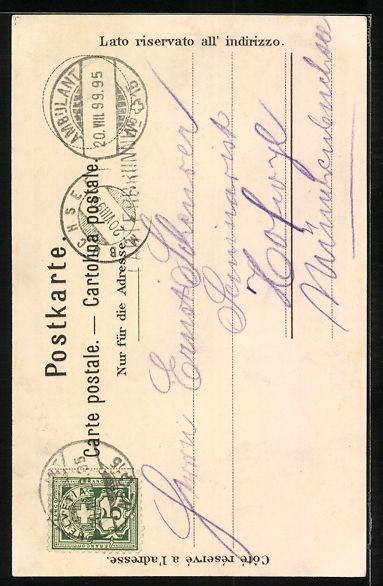 Lato riservato all' indirizzo.
Postkarte.
Carte postale. — Cartolina postale.
Nur für die Adresse.
AMBULANT
20.VIII.99.95
HELVETIA
5
FRANCO
Herrn Ernst Scheurer
Seminarist
Hofwyl
Münchenbuchsee
Côté réservé à l'adresse.